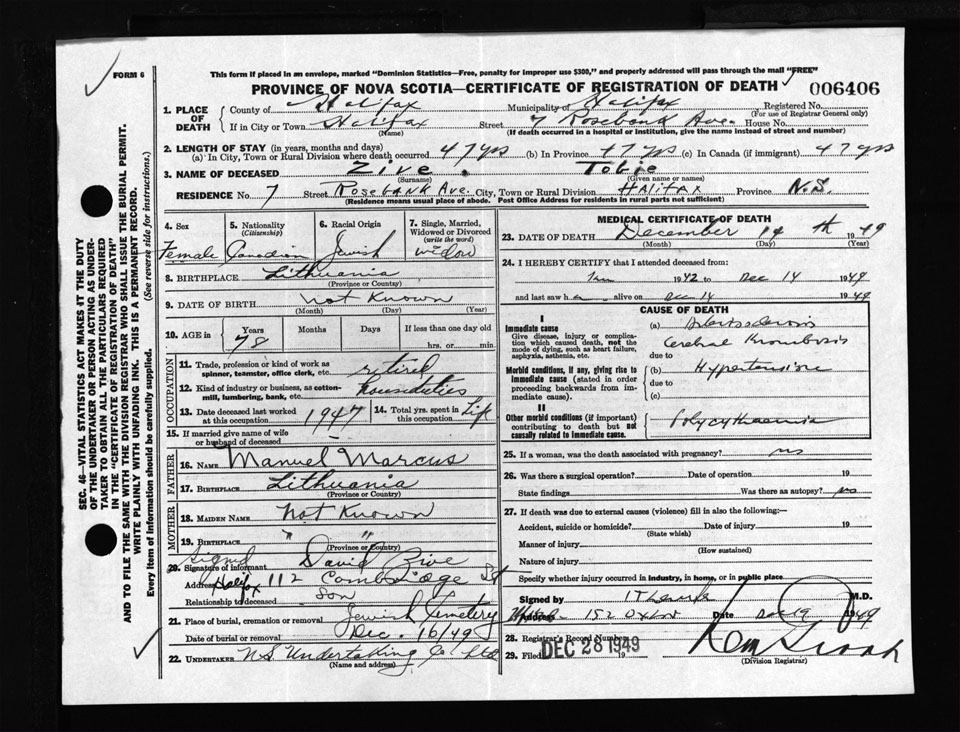 FORM 6
This form if placed in an envelope, marked "Dominion Statistics—Free, penalty for improper use $300," and properly addressed will pass through the mail "FREE"
PROVINCE OF NOVA SCOTIA—CERTIFICATE OF REGISTRATION OF DEATH
006406
1. PLACE OF DEATH County of Halifax Municipality of Halifax Registered No.
(For use of Registrar General only)
If in City or Town Halifax Street 7 Rosebank Ave. House No.
(Name) (If death occurred in a hospital or institution, give the name instead of street and number)
2. LENGTH OF STAY (in years, months and days)
(a) In City, Town or Rural Division where death occurred 47 yrs (b) In Province 47 yrs (c) In Canada (if immigrant) 47 yrs
3. NAME OF DECEASED Zive. Tobie
(Surname) (Given name or names)
RESIDENCE No 7 Street Rosebank Ave. City, Town or Rural Division HAlifax Province N.S.
(Residence means usual place of abode. Post Office Address for residents in rural parts not sufficient)
4. Sex
Female
5. Nationality
(Citizenship)
Canadian
6. Racial Origin
Jewish
7. Single, Married, Widowed or Divorced
(write the word)
widow
8. BIRTHPLACE Lithuania
(Province or Country)
9. DATE OF BIRTH not Known
(Month) (Day) (Year)
10. AGE in Years Months Days If less than one day
78 hrs. or min.
OCCUPATION
11. Trade, profession or kind of work as spinner, teamster, office clerk, etc. retired
12. Kind of industry or business, as cotton-mill, lumbering, bank, etc. houseduties
13. Date deceased last worked at this occupation 1947
14. Total yrs. spent in this occupation Life
15. If married give name of wife or husband of deceased –
FATHER
16. NAME Manuel Marcus
17. BIRTHPLACE Lithuania
(Province or Country)
MOTHER
18. MAIDEN NAME not Known
19. BIRTHPLACE " "
(Province or Country)
Signed David Zive
20. Signature of informant
Address Halifax 112 Cambridge St
Relationship to deceased Son
21. Place of burial, cremation or removal Jewish Cemetery
Date of burial or removal Dec. 16/49
22. UNDERTAKER N.S. Undertaking Co. Ltd
(Name and address)
MEDICAL CERTIFICATE OF DEATH
23. DATE OF DEATH December 14 th 1949
(Month) (Day) (Year)
24. I HEREBY CERTIFY that I attended deceased from:
1942 to Dec 14 1949
and last saw h alive on Dec 14 1949
CAUSE OF DEATH
I
Immediate cause
Give disease, injury or complication which caused death, not the mode of dying, such as heart failure, asphyxia, asthenia, etc.
(a)
Cerebral Thrombosis
due to
Morbid conditions, if any, giving rise to immediate cause (stated in order proceeding backwards from immediate cause).
(b) Hypertension
due to
(c)
II
Other morbid conditions (if important) contributing to death but not causally related to immediate cause.
Polycythaemia
25. If a woman, was the death associated with pregnancy? no
26. Was there a surgical operation? Date of operation 19
State findings Was there an autopsy? no
27. If death was due to external causes (violence) fill in also the following:—
Accident, suicide or homicide? Date of injury 19
(State which)
Manner of injury
(How sustained)
Nature of injury
Specify whether injury occurred in industry, in home, or in public place
Signed by M.D.
Address 152 Oxford Date Dec 19 1949
28. Registrar's Record Number
29. Filed DEC 28 1949 19
(Division Registrar)
SEC. 46—VITAL STATISTICS ACT MAKES IT THE DUTY OF THE UNDERTAKER OR PERSON ACTING AS UNDERTAKER TO OBTAIN ALL THE PARTICULARS REQUIRED IN THE "CERTIFICATE OF REGISTRATION OF DEATH"
AND TO FILE THE SAME WITH THE DIVISION REGISTRAR WHO SHALL ISSUE THE BURIAL PERMIT.
WRITE PLAINLY WITH UNFADING INK. THIS IS A PERMANENT RECORD.
Every item of information should be carefully supplied. (See reverse side for instructions.)